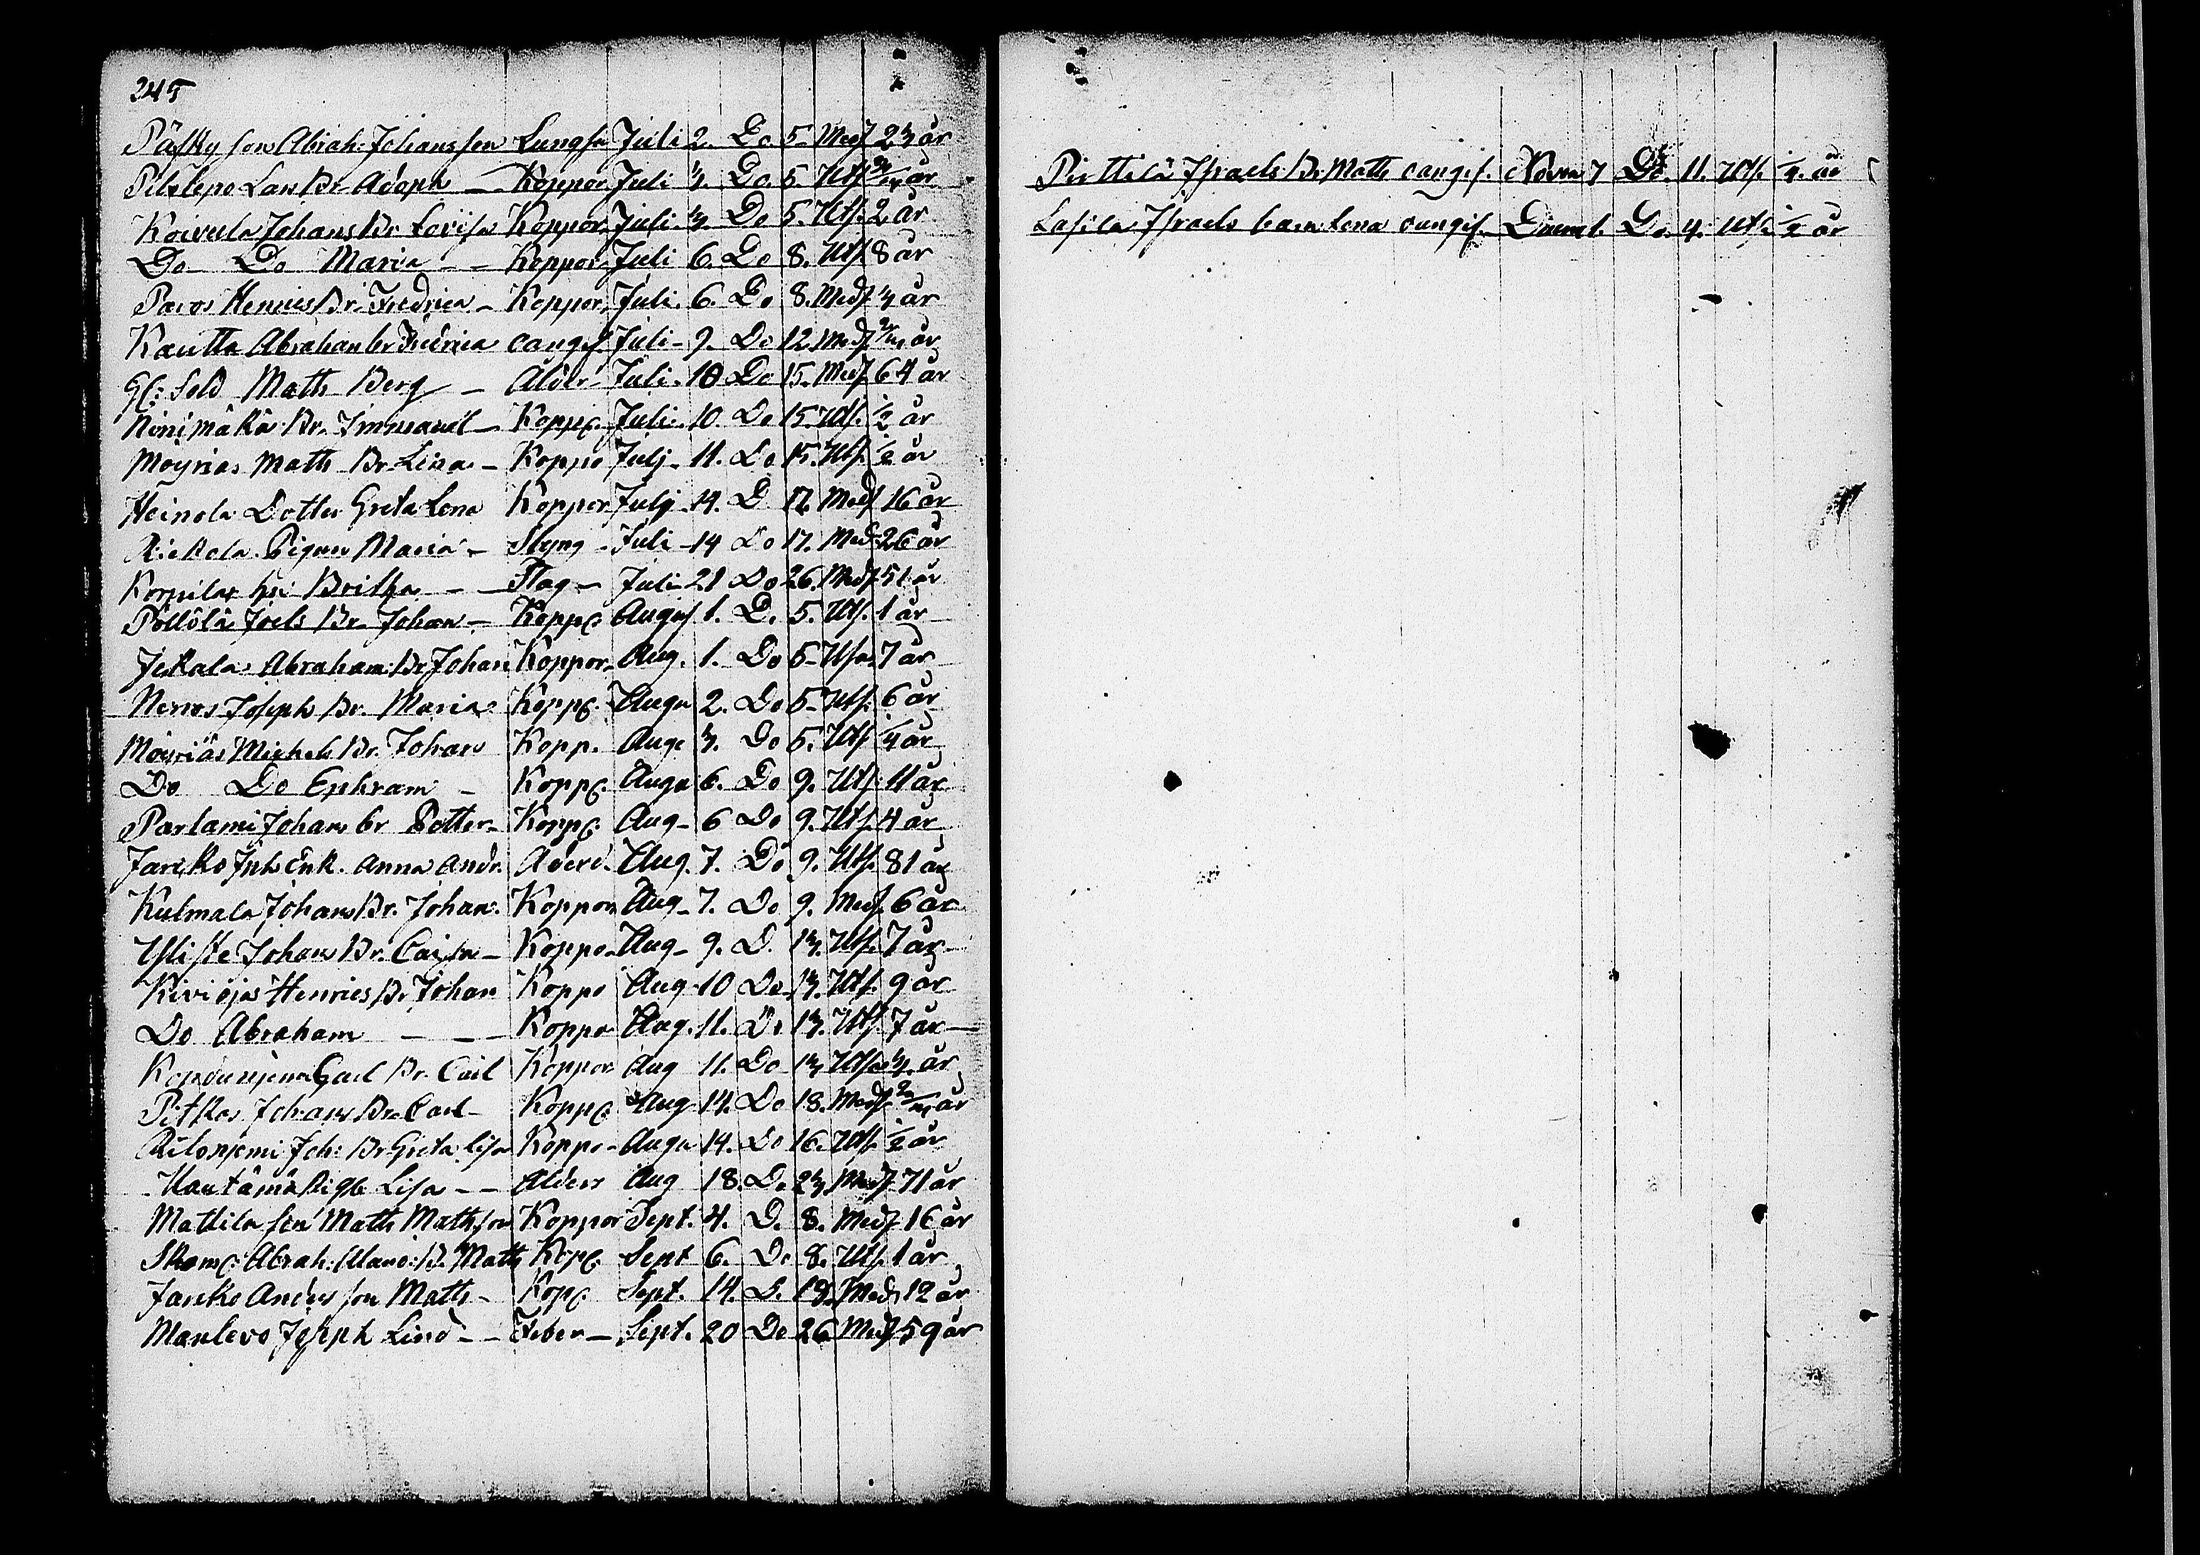 245
Päsky son Abrah: Johansson Lungs Juli 2. Do 5. Med 23 år
Pelolepo Lars Br. Adoph — Koppor Juli 3. Do. 5. Utf 3/4 år
Koivula Johans Br. Lovisa Koppor Juli 3. Do 5. Utf. 2 år
Do Do Maria — — Koppor Juli 6. Do 8. Utf 8 år
Pavos Henrics Br. Fredrica — Koppor Juli. 6. Do 8. Med 3 år
Kautta Abraham br Fredrica oangif. Juli 9. Do 12. Med 3/4 år
Gl: Sold Matts Berg — Ålder Juli. 10 Do 15. Med 64 år
Ninimäkä Br. Immanuel — Kopp. Juli 10. Do 15. Utf. 1/2 år
Möyriäs Matts Br. Lisa — Koppo Julj 11. Do 15. Utf. 1/2 år
Heinola Dotter Greta Lena Koppor Julj 14. D 17. Med 16 år
Rickola Pigan Maria — Styng Juli 14 Do 17. Med 26 år
Korpilax hu Britha — — Slag — Juli 21 Do 26. Med 51 år
Pöllölä Joels Br. Johan — Kopp. August 1. D. 5. Utf. 1 år
Jokala Abraham Br Johan Koppor Aug. 1. Do 5. Utf. 7 år
Joseph Br. Maria Kopp. Augu 2. Do 5. Utf. 6 år
Möyriäs Michels Br. Johan Kopp. Augu 3. Do 5. Utf 1/4 år
Do Do Ephram — Kopp. Augu 6. Do 9. Utf. 11 år
Parlami Johans br Petter Kopp. Aug 6 Do 9. Utf. 4 år
Jaricko Inh Enk. Anna Andr. Åderd. Aug. 7. Do 9. Utf. 81 år
Kulmala Johans Br. Johan. Koppor Aug 7. Do 9. Med 6 år
Johans Br. Caisa — Koppo Aug 9. D. 13. Utf 7 år
Kiviojas Henrics Br Johan Koppo Aug 10 Do 13. Utf. 9 år
Do Abraham — — Koppo Aug. 11. Do 13. Utf 7 år
Carl Br. Carl Koppor Aug 11. Do 13 Utf år
Pitkas Johans Br Carl — Kopp. Aug 14. Do 18. Med 2/4 år
Ritoniemi Joh: Br Greta Lisa Koppo Augu 14. Do 16. Utf. 1/2 år
Hautamä Pigb Lisa — — Ålder Aug 18. Do 23. Med 71 år
Mattila son Matts Mattsson Koppor Sept. 4. D. 8. Med 16 år
Skom: Abrah: Br. Matts Kopp. Sept 6. Do 8. Utf. 1 år
Jaricko Anders son Matts — Kopp. Sept. 14. D. 19. Med 12 år
Manlevo Joseph Lind — — Feber — Sept. 20 Do 26 Med 59 år
Pirttilä Israels Br Matts oangif. Novem 7 Do. 11. Utf. 1/4 år
Lasila Israels barn Lena oangif. Decem 1. Do. 4. Utf. 1/2 år